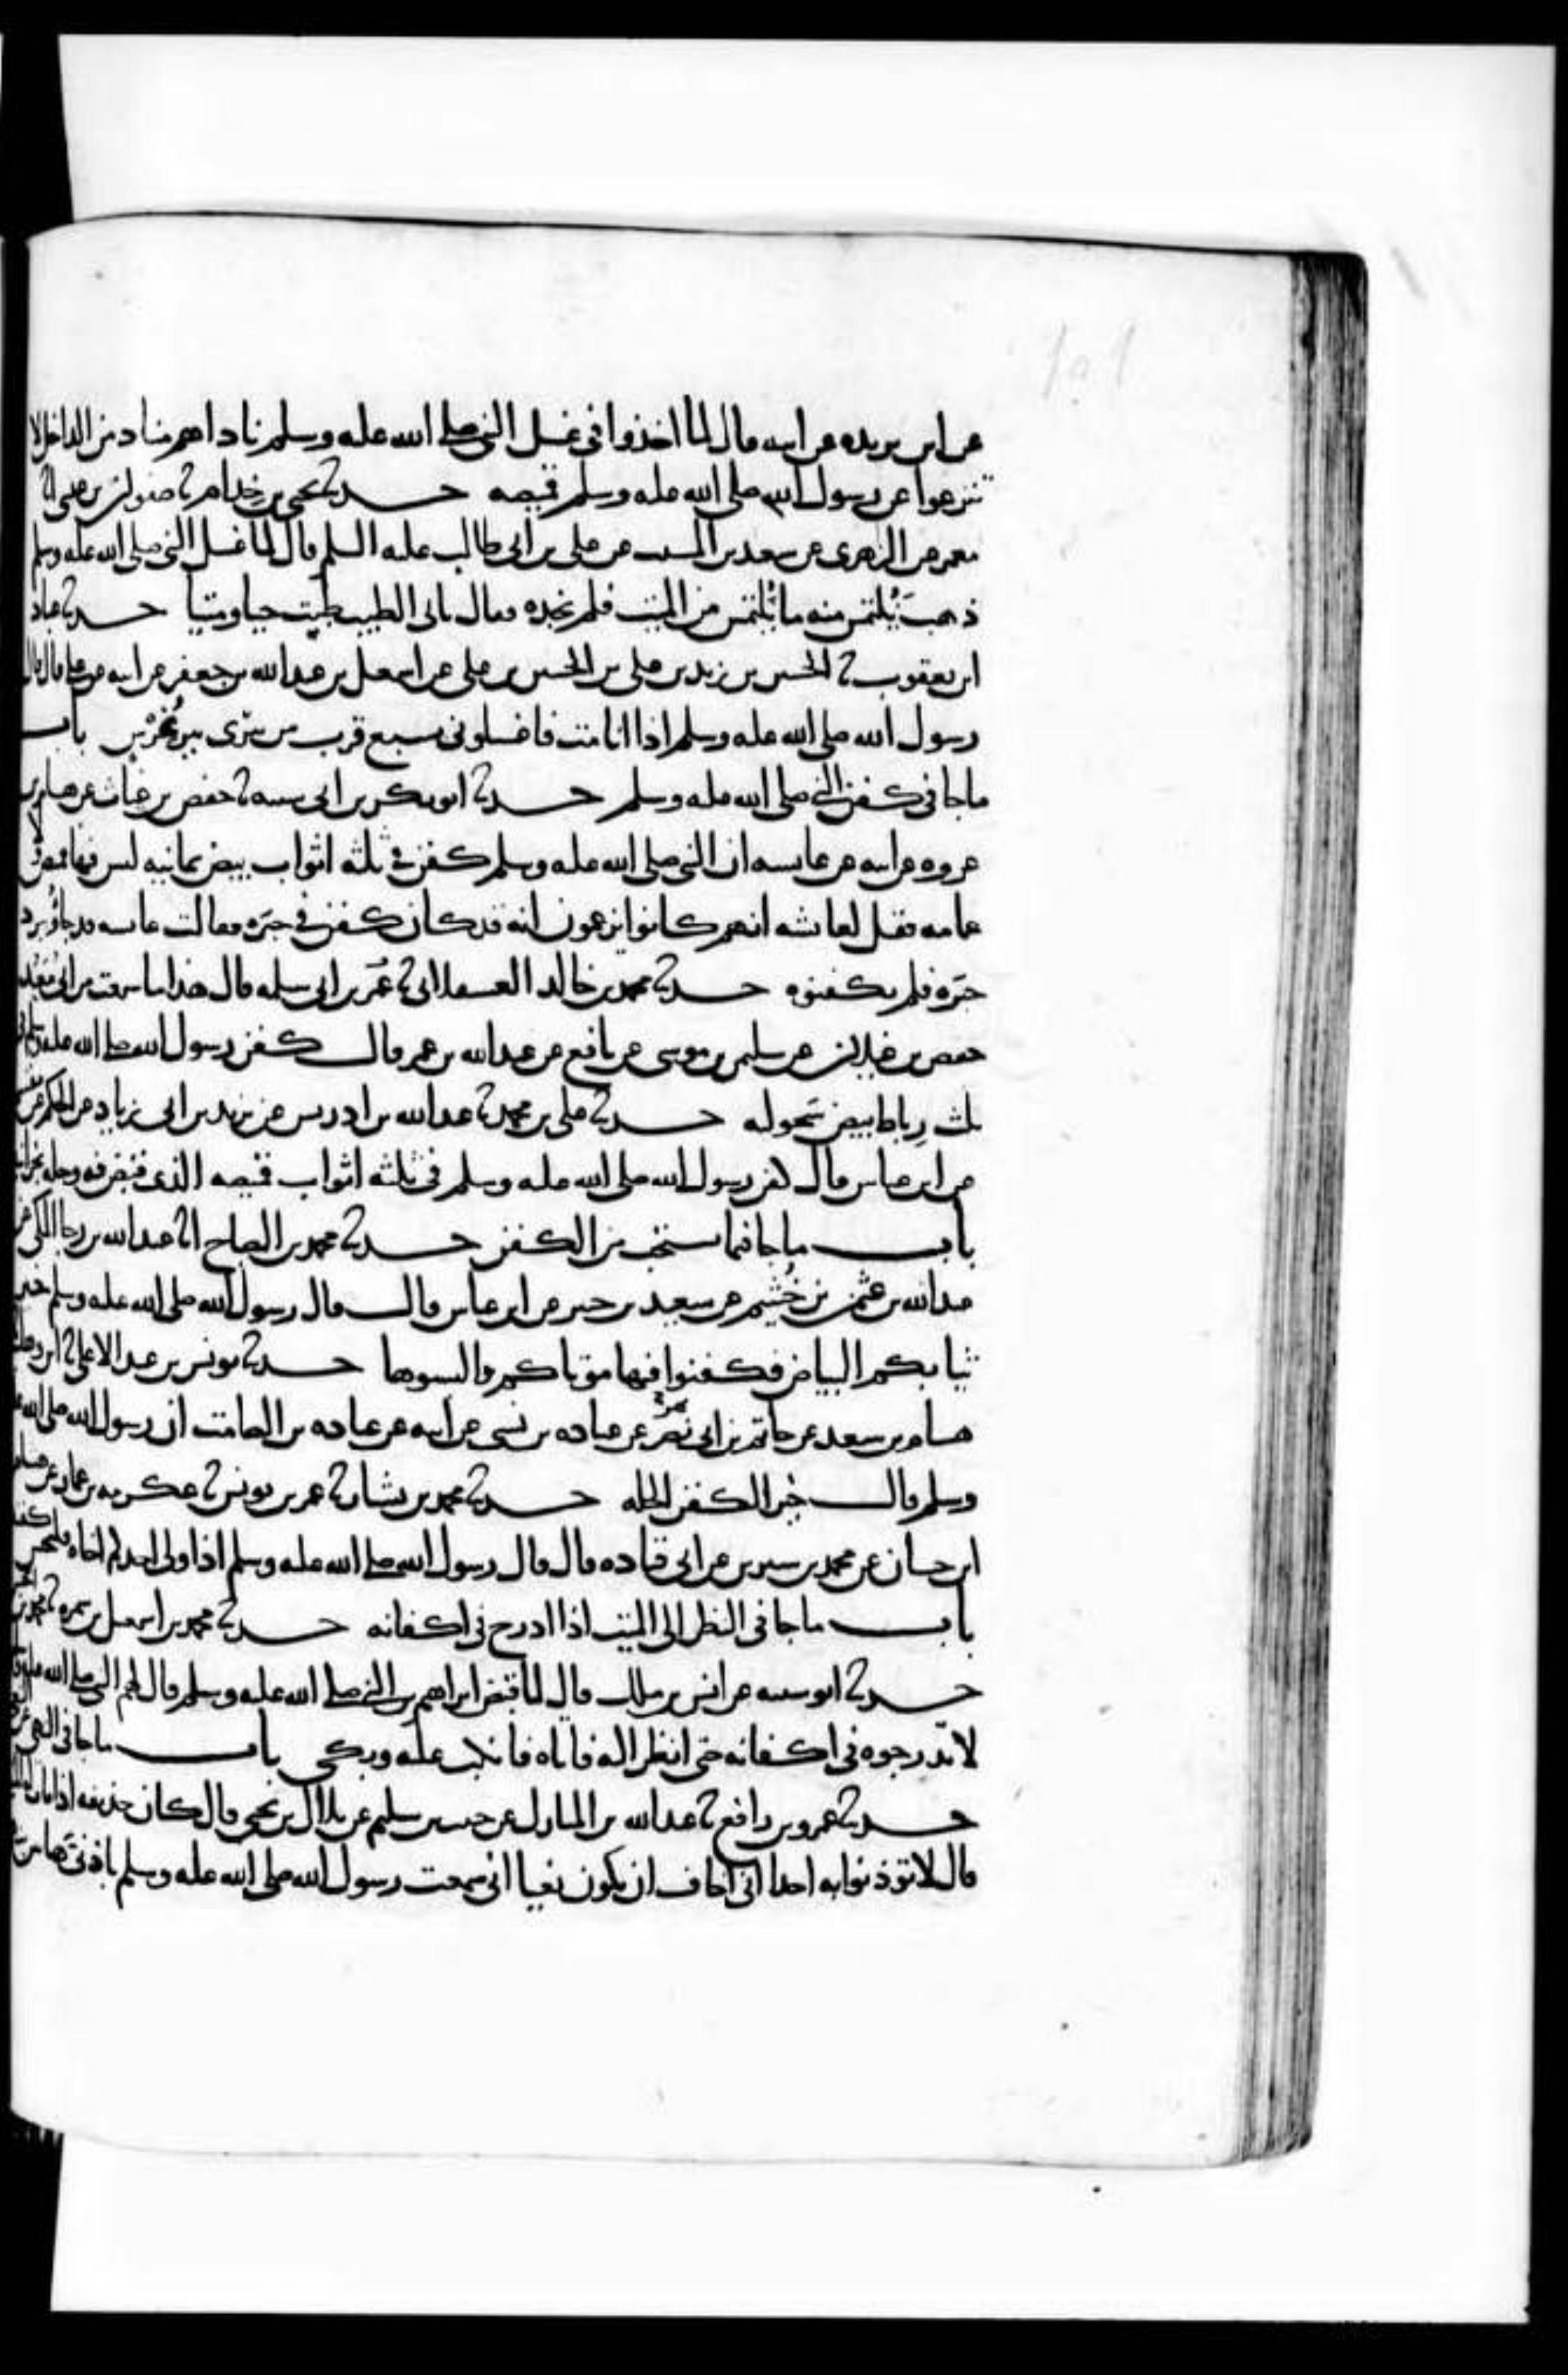 عن ابن بريده عن ابيه قال لما اخذوا في غسل النبي صلى الله عليه وسلم ناداهم مناد من الداخل لا
تنزعوا عن رسول الله صلى الله عليه وسلم قميصه حدثنا يحيى بن خذام ثنا صفوان بن عيسى انا
معمر عن الزهرى عن سعيد بن المسيب عن علي بن ابي طالب عليه السلم قال لما غسل النبي صلى الله عليه وسلم
ذهب يُلتمس منه ما يُلتمس من الميت فلم يجده فقال بابي الطيب طبت حيا وميتا حدثنا عباد
ابن يعقوب ثنا الحسين بن زيد بن علي بن الحسين بن علي عن اسمعيل بن عبدالله بن جعفر عن ابيه عن علي قال قال
رسول الله صلى الله عليه وسلم اذا انا مت فاغسلوني بسبع قرب من بئرى بير غرس باب
ما جا في كفن النبي صلى الله عليه وسلم حدثنا ابو بكر بن ابي شيبه ثنا حفص بن غياث عن هشام بن
عروه عن ابيه عن عايشه ان النبي صلى الله عليه وسلم كفن في ثلثه اثواب بيض يمانيه ليس فيها قميص ولا
عمامه فقيل لعائشه انهم كانوا يزعمون انه قد كان كفن في حبره فقالت عايشه قد جاؤا ببرد
حبره فلم يكفنوه حدثنا محمد بن خالد العسقلاني ثنا عمرو بن ابي سلمه قال هذا ما سمعت من ابي معيد
حفص بن غيلان عن سليمن بن موسى عن نافع عن عبدالله بن عمر قال كفن رسول الله صلى الله عليه وسلم في
ثلث رياط بيض سحوليه حدثنا علي بن محمد ثنا عبدالله بن ادريس عن يزيد بن ابي زياد عن الحكم عن مقسم
عن ابن عباس قال كفن رسول الله صلى الله عليه وسلم في ثلثه اثواب قميصه الذى قبض فيه وحله نجرانيه
باب ما جا فيما يستحب من الكفن حدثنا محمد بن الصباح انا عبدالله بن رجا المكي عن
عبدالله بن عثمن بن خُثيم عن سعيد بن جبير عن ابن عباس قال قال رسول الله صلى الله عليه وسلم خير
ثيابكم البياض فكفنوا فيها موتاكم والبسوها حدثنا يونس بن عبد الاعلى ثنا ابن وهب
هشام بن سعد عن حاتم بن ابي نصر عن عباده بن نسي عن ابيه عن عباده بن الصامت ان رسول الله صلى الله عليه
وسلم قال خير الكفن الحله حدثنا محمد بن بشار ثنا عمر بن يونس ثنا عكرمه بن عمار عن هشام
ابن حسان عن محمد بن سيرين عن ابي قتاده قال قال رسول الله صلى الله عليه وسلم اذا ولى احدكم اخاه فليحسن كفنه
باب ما جا في النظر الى الميت اذا ادرج في اكفانه حدثنا محمد بن اسمعيل بن سمره ثنا محمد بن
حدثنا ابو شيبه عن انس بن ملك قال لما قبض ابراهيم بن النبي صلى الله عليه وسلم قال لهم النبي صلى الله عليه وسلم
لا تدرجوه في اكفانه حتى انظر اليه فاتاه فانكب عليه وبكى باب ما جا في النهي عن النعي
حدثنا عمرو بن رافع ثنا عبدالله بن المبارك عن حبيب بن سليم عن بلال بن يحيى قال كان حذيفه اذا مات له الميت
قال لا توذنوا به احدا اني اخاف ان يكون نعيا اني سمعت رسول الله صلى الله عليه وسلم باذني هاتين